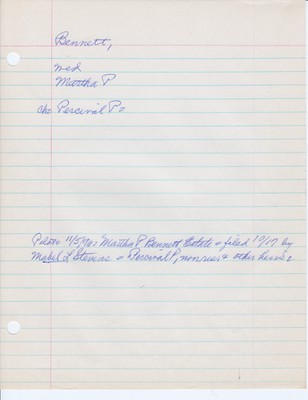 Bennett,
med
Martha P
ch: Percival P.
11/5/ Martha P Bennett Estate filed 10/17 by
Mabel L Stevens Percival P, nonres & other heirs